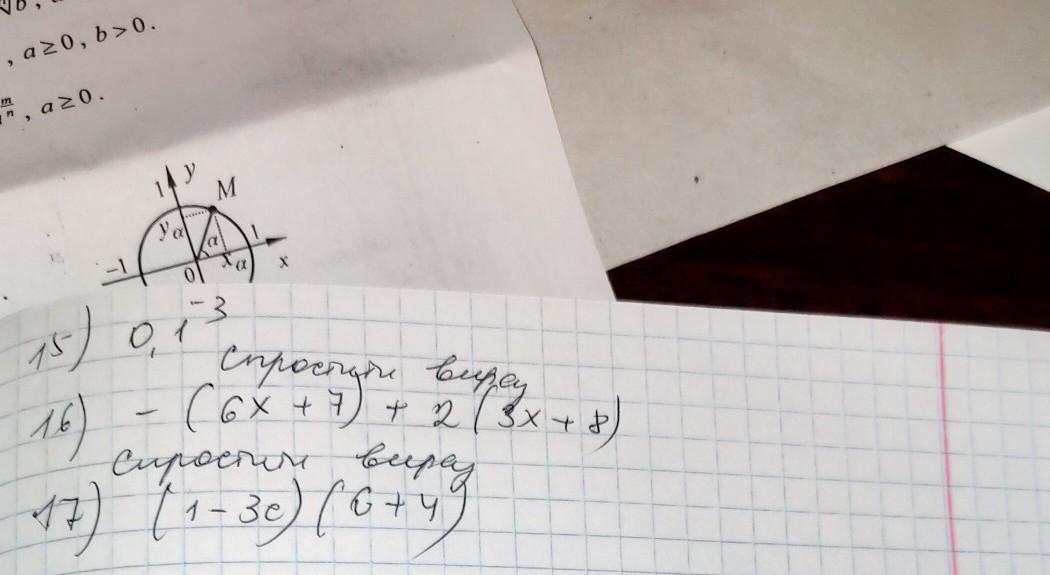 , a ≥ 0, b > 0.
m/n, a ≥ 0.
1 y M
yα α 1
-1 0 xα x
15) 0,1⁻³
Спростити вираз
16) - (6x + 7) + 2 (3x + 8)
Спростити вираз
17) (1 - 3c) (6 + 4)